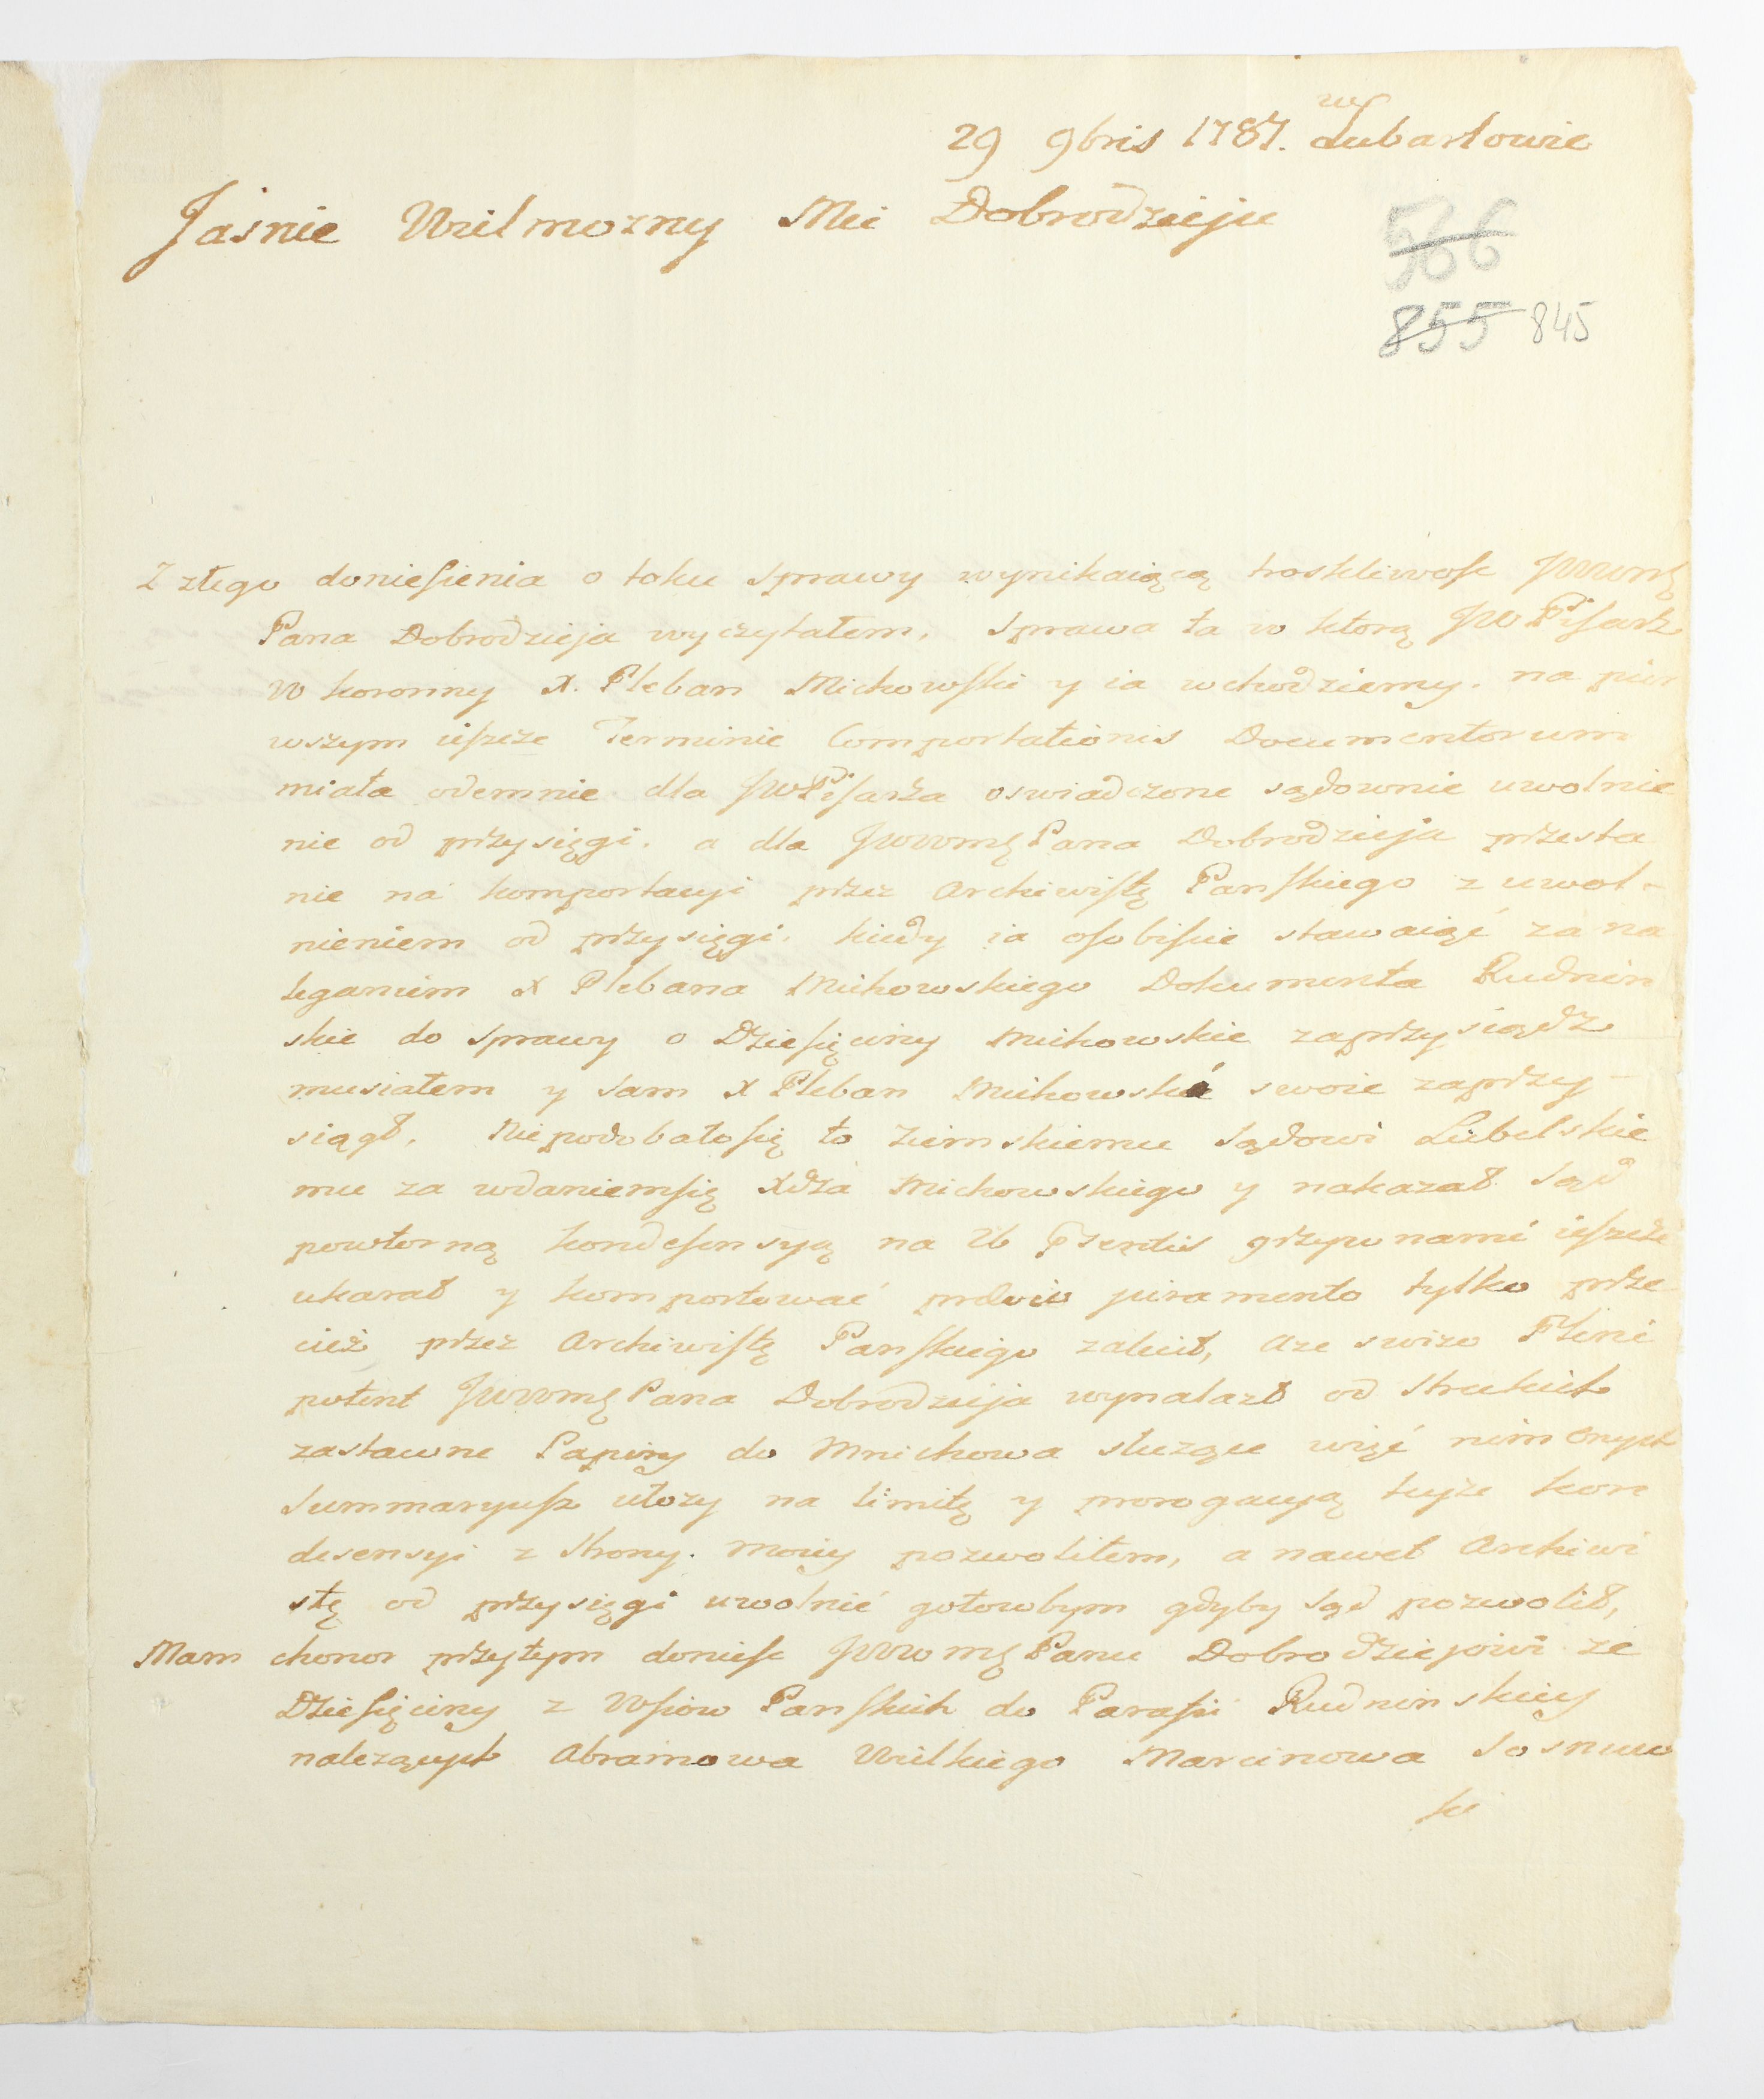 29 9bris 1787. w Lubartowie
Jasnie Wielmozny Mci Dobrodzieju
566
855 845
Z złego doniesienia o toku sprawy wynikaiącą troskliwosc JWWMę
Pana Dobrodzieja wyczytałem, sprawa ta w ktorą JW Pisarz
W koronny X. Pleban Michowski y ia wchodziemy. na pier
wszym ieszcze Terminie Comportationis Documentorum
miała odemnie dla JWPisarza oswiadczone sądownie uwolnie
nie od przysięgi. a dla JWWMę Pana Dobrodzieja przesta
nie na komportacyi przez Archiwistę Panskiego z uwol-
nieniem od przysięgi, kiedy ia osobiscie stawaiąć za na
leganiem X Plebana Michowskiego Dokumenta Rudnin
skie do sprawy o Dziesięciny Michowskie zaprzysiądz
musiałem y sam X Pleban Michowski swoie zaprzy-
siągł, Niepodobałosię to Ziemskiemu Sądowi Lubelskie
mu za wdaniemsię Xdza Michowskiego y nakazał Sąd
powtorną kondesensyą na 26 grzywnami ieszcze
ukarał y komportować juramento tylko prze
cież przez Archiwistę Panskiego zalecił, Aze swizo Pleni
potent JWWMę Pana Dobrodzieja wynalazł od Streckich
zastawne Papiery do Mnichowa sluzące więć nim onych
Summaryusz ułozy na limitę y prorogacyą teyże kon
desensyi z strony. moiey pozwoliłem, a nawet Archiwi
stę od przysięgi uwolnić gotowbym gdyby Sąd pozwolił,
Mam chonor przytym doniesc JWWMę Panu Dobrodziejowi ze
Dziesięciny z Wsiow Panskich do Parafii Rudninskiey
nalezących Abramowa Wielkiego Marcinowa Sosnuw
ki